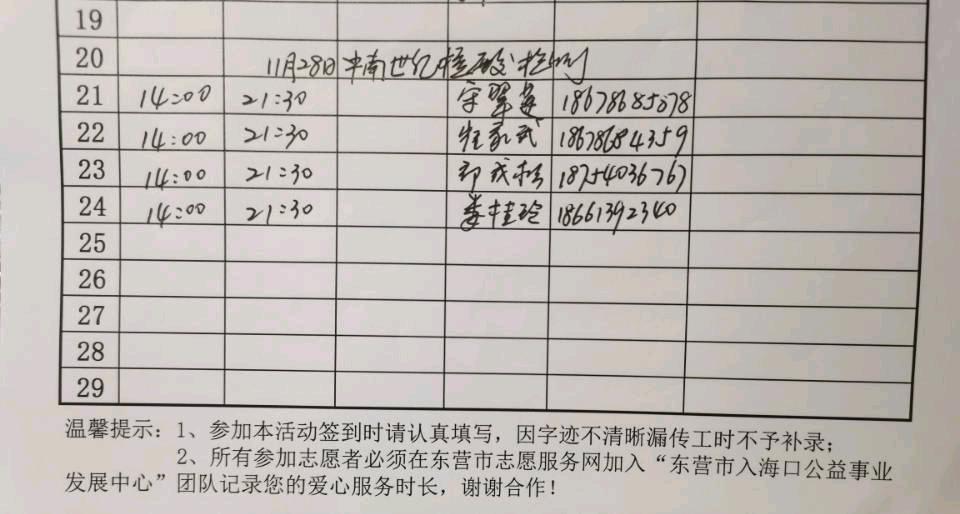 19
20 11月28日中南世纪核酸检测
21 14:00 21:30 18678685078
22 14:00 21:30 18678684359
23 14:00 21:30 18754036767
24 14:00 21:30 娄桂玲 18661392340
25
26
27
28
29
温馨提示：1、参加本活动签到时请认真填写，因字迹不清晰漏传工时不予补录；
2、所有参加志愿者必须在东营市志愿服务网加入“东营市入海口公益事业
发展中心”团队记录您的爱心服务时长，谢谢合作！